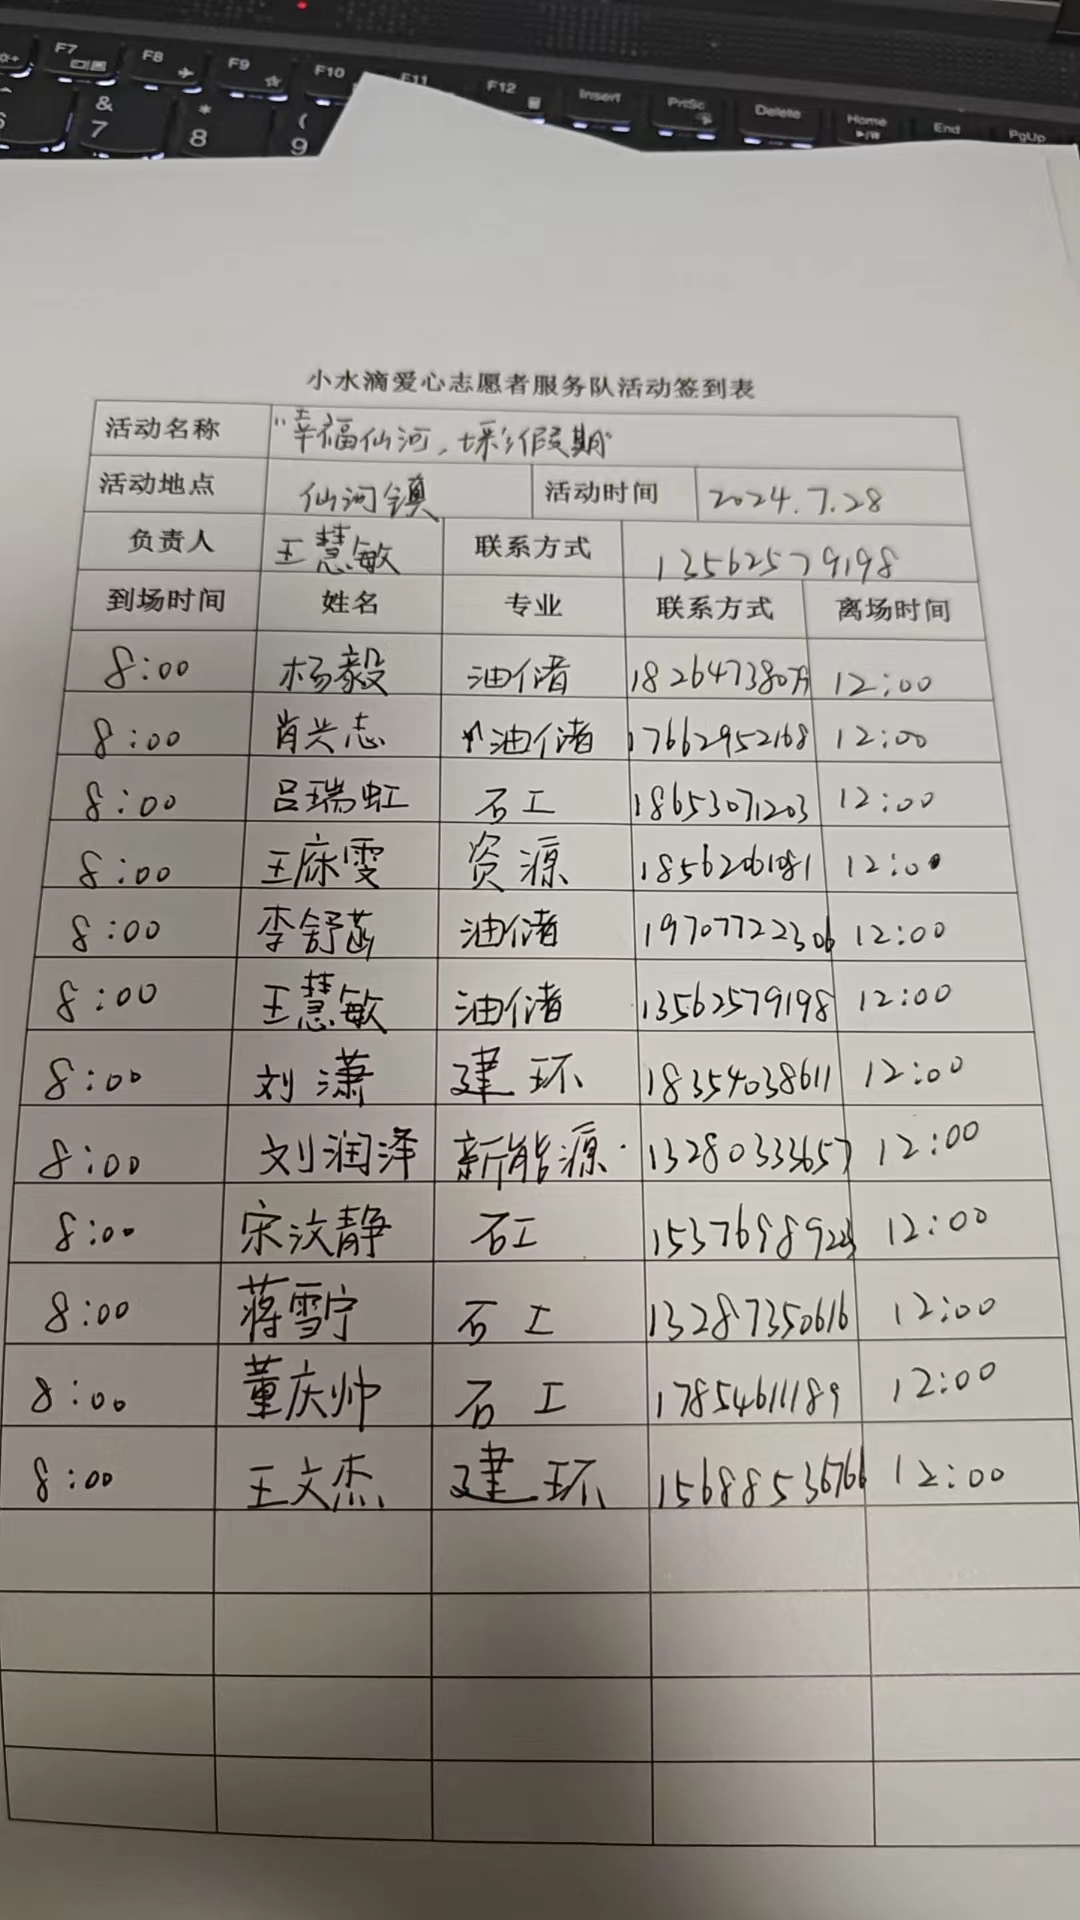 F7 F8 F9 F10 F11 F12 Insert PrtSc Delete Home End PgUp
6 & 7 * 8 ( 9
小水滴爱心志愿者服务队活动签到表
活动名称 "幸福仙河,七彩假期"
活动地点 仙河镇 活动时间 2024.7.28
负责人 王慧敏 联系方式 13562579198
到场时间 姓名 专业 联系方式 离场时间
8:00 杨毅 油储 12:00
8:00 肖兴志 油储 17662952168 12:00
8:00 吕瑞虹 石工 18653071203 12:00
8:00 王庥雯 资源 18562061081 12:00
8:00 李舒菡 油储 19707722306 12:00
8:00 王慧敏 油储 13562579198 12:00
8:00 刘潇 建环 18354038611 12:00
8:00 刘润泽 新能源 13280333657 12:00
8:00 宋汶静 石工 15376989223 12:00
8:00 蒋雪宁 石工 13287350616 12:00
8:00 董庆帅 石工 17854611189 12:00
8:00 王文杰 建环 15688536766 12:00